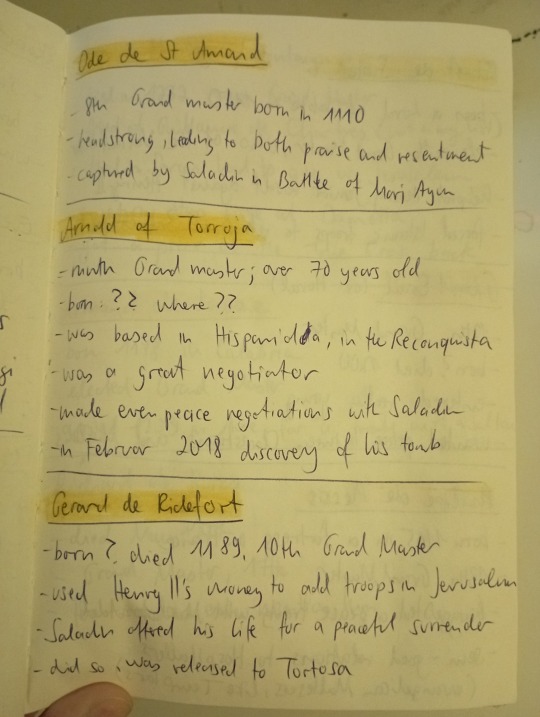 Ode de St Amand
- 8th Grand master born in 1110
- headstrong, leading to both praise and resentment
- captured by Saladin in Battke of Marj Ayun
Arnold of Torroja
- ninth Grand master; over 70 years old
- born: ?? where??
- was based in Hispanidda, in the Reconquista
- was a great negotiator
- made even peace negotiations with Saladin
- in Februar 2018 discovery of his tomb
Gerard de Ridefort
- born?, died 1189, 10th Grand Master
- used Henry II's money to add troops in Jerusalem
- Saladin offred his life for a peaceful surrender
- did so, was released to Tortosa